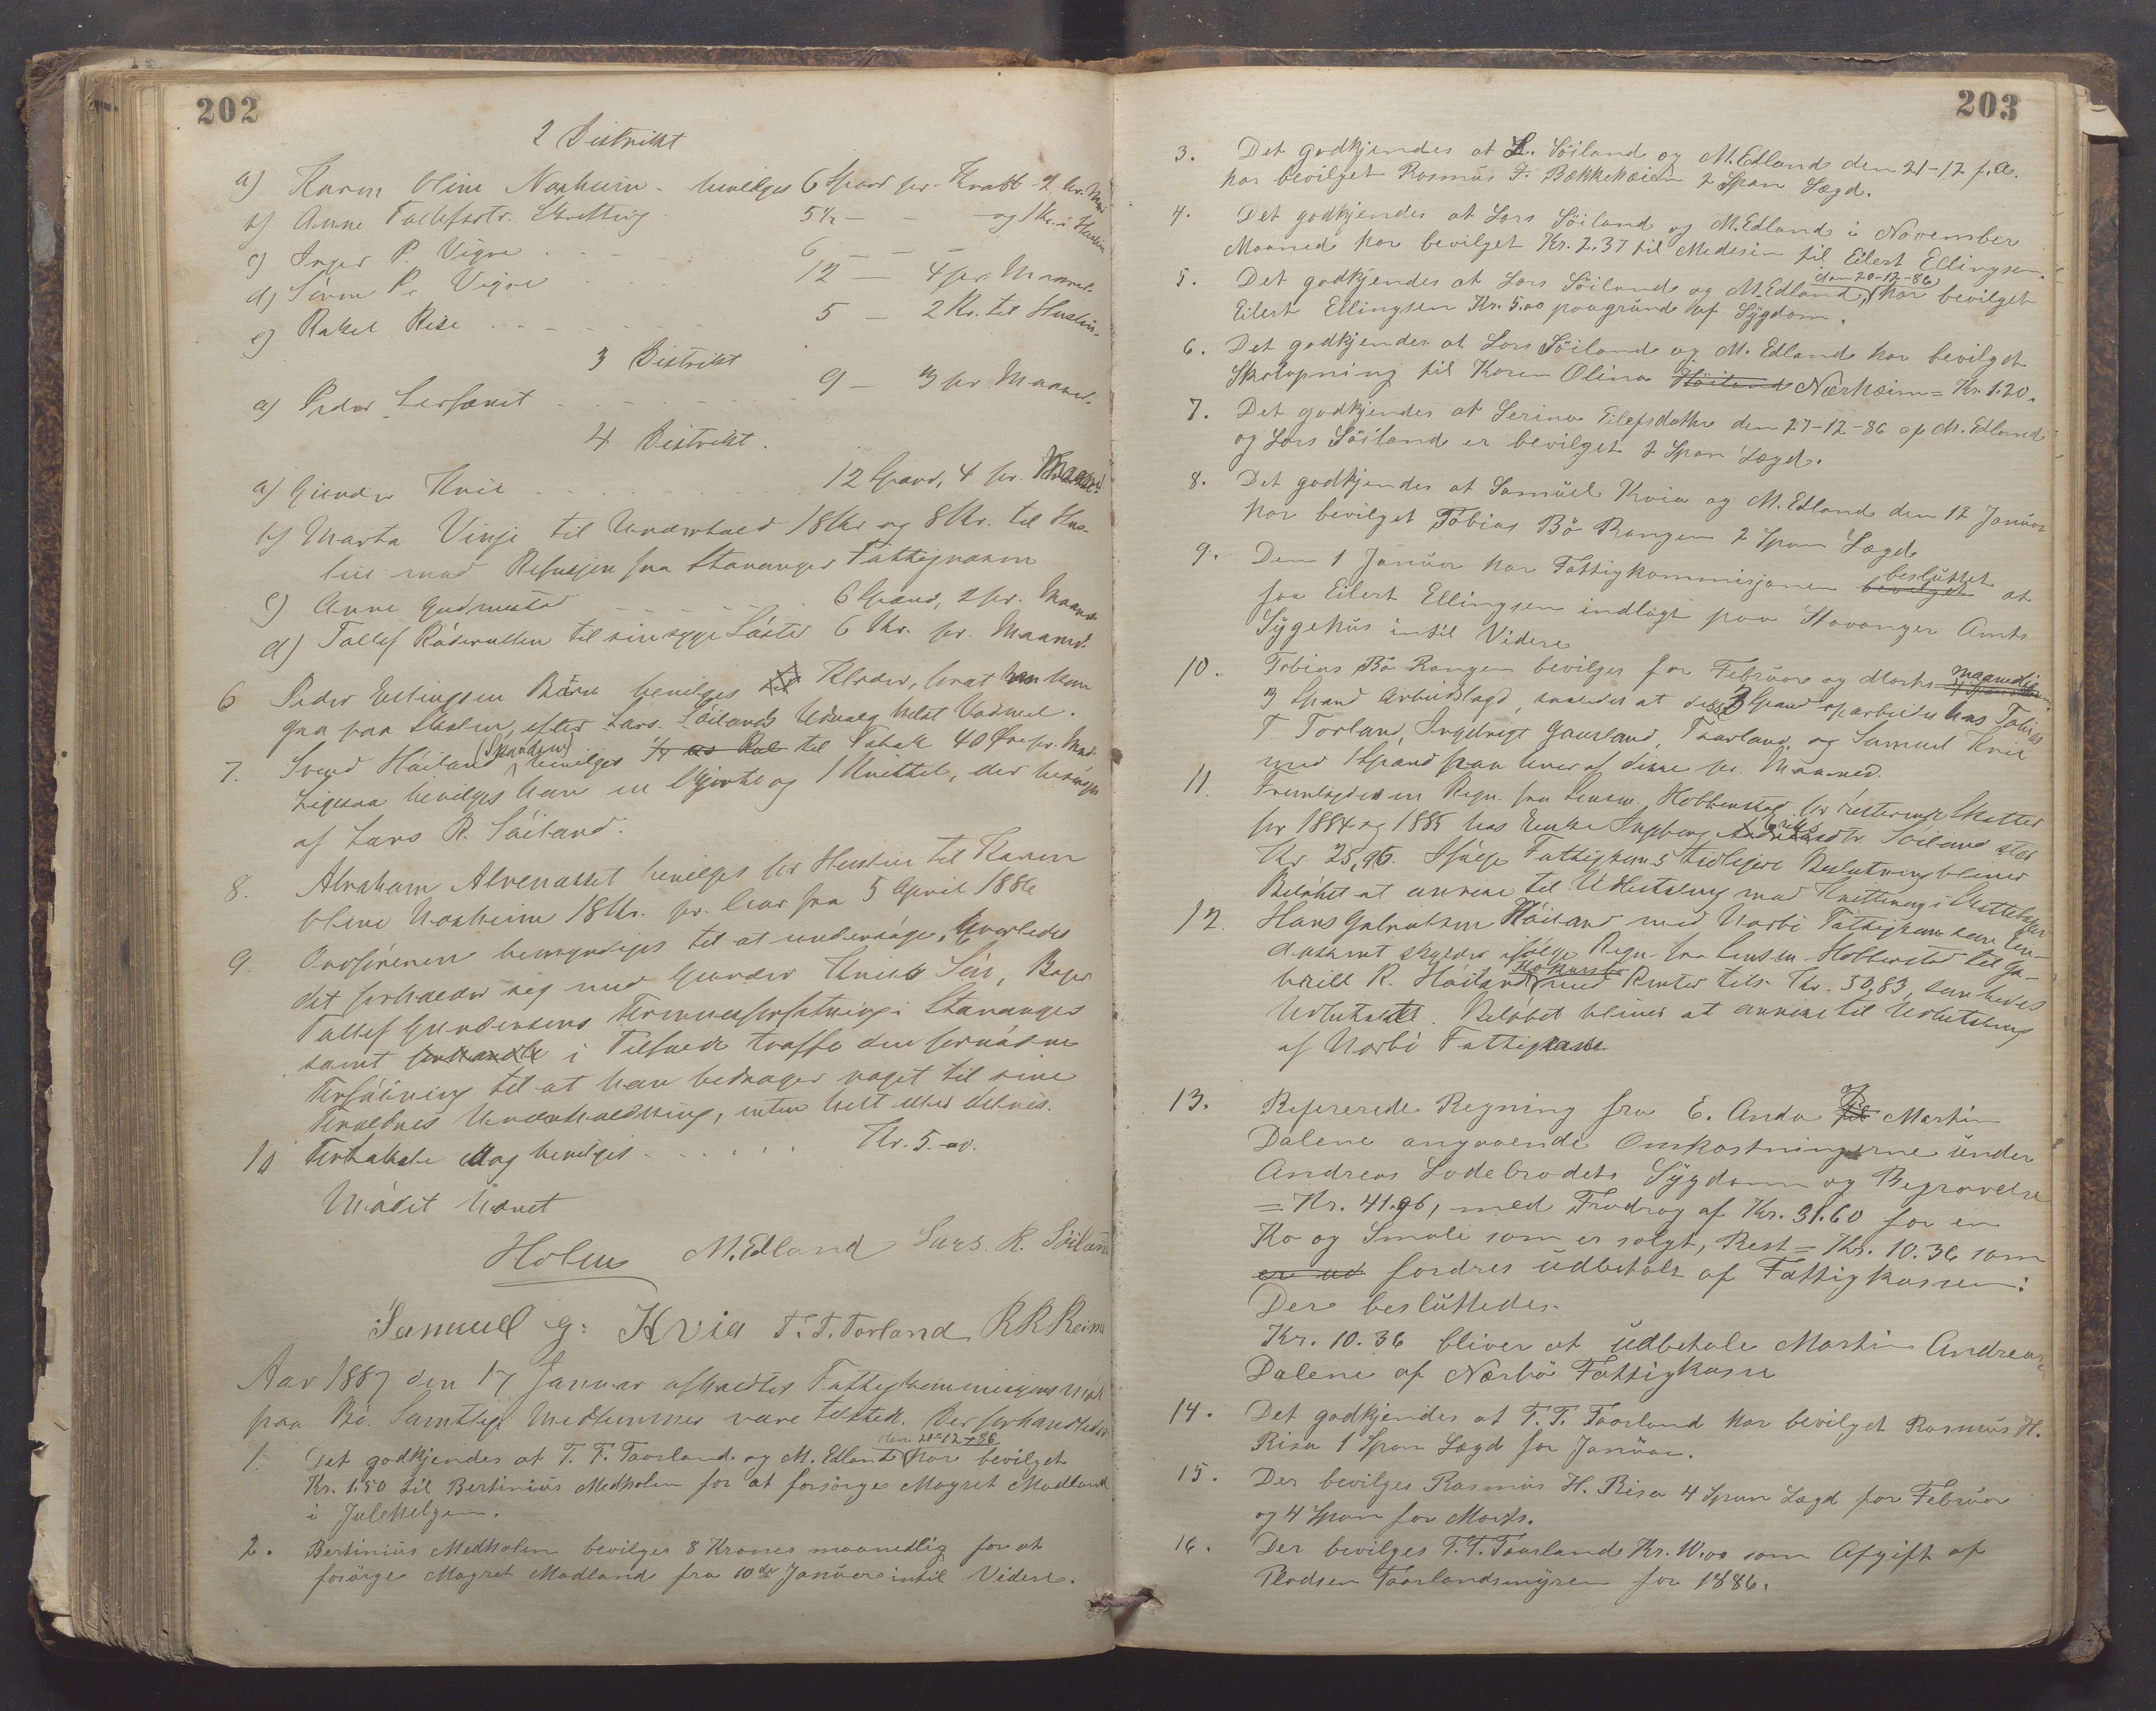 202
2 Distrikt
a) Karen Oline Narheim - bevilges 6 Spand pr. Krabb 2 Kr. Mnd
b) Anne Tollefsdtr. Skretting 5½ — - og 1 Kr. i Husleie
c) Inger P. Vigre . . . 6 — —
d) Sören P. Vigre . . . 12 — 4 pr. Maaned.
e) Rakel Rise . . . 5 — 2 Kr. til Husleie.
3 Distrikt
a) Peder Lerbrat . . . 9 — 3 pr. Maaned.
4 Distrikt.
a) Gunder Kvie . . . 12 Spand, 4 pr. Maaned.
b) Marta Vinje til Underhold 18 Kr og 8 Kr. til Hus-
leie med Refusjon fra Stavanger Fattigvæsen
c) Anne Gudmestad . . . 6 Spand, 2 pr. Maaned
d) Tollef Rådevollen til sin syge Söster 6 Kr. pr. Maaned.
6 Peder Ellingsen Börve bevilges til Klæder, hvat han kan
gaa paa Skolen, efter Lars Söilands Udvalg helst Vadmel.
7. Svend Höiland (Spanden) bevilges til Tobak 40 Øre pr. Mnd.
Ligesaa bevilges han en Skjorte og 1 Knittel, der besörges
af Lars R. Söiland.
8. Abraham Alvenæset bevilges for Husleie til Karen
Oline Narheim 18 Kr. pr. Aar fra 5 April 1886
9. Ordföreren bemyndiges til at undersöge, hvorledes
det forholder sig med Gunder Kvies Sön, Bager
Tollef Gundersens Formuesforfatning i Stavanger
samt forhandle i Tilfælde træffe den fornödne
Forföining til at han bedrager noget til sine
Forældres Underholdning, enten helt eller delvis.
10 Forhaste Dag bevilges . . . . Kr. 5.00.
Mödet hævet
Holm M. Edland Lars. R. Söiland
Samuel G: Kvia T. T. Torland R R Reime
Aar 1887 den 17 Januar afholdtes Fattigkommisjons Möde
paa Bö. Samtlige Medlemmer vare tilstede. Der forhandledes
den 21-12-86
1. Det godkjendes at T. T. Taarland og M. Edland har bevilget
Kr. 1.50 til Bertinius Medholen for at forsörge Magret Madland
i Julehelgen.
2. Bertinius Medholen bevilges 8 Kroner maanedlig for at
forsörge Magret Madland fra 10de Januar intil Videre.
203
3. Det godkjendes at L. Söiland og M. Edland den 21-12 f.A.
har bevilget Rasmus F. Bækkeheien 2 Span Lægd.
4. Det godkjendes at Lars Söiland og M. Edland i November
Maaned har bevilget Kr. 2.37 til Medesin til Eilert Ellingsen.
den 20-12-86
5. Det godkjendes at Lars Söiland og M. Edland, har bevilget
Eilert Ellingsen Kr. 5.00 paagrund af Sygdom.
6. Det godkjendes at Lars Söiland og M. Edland har bevilget
Skolapning til Karen Olina Höiland Nærheim = Kr. 1.20.
7. Det godkjendes at Serina Eilefsdatter den 27-12-86 af M. Edland
og Lars Söiland er bevilget 2 Span Lægd.
8. Det godkjendes at Samuel Kvia og M. Edland den 12 Januar
har bevilget Tobias Bö Rangen 2 Span Lægd
besluttet
9. Den 1 Januar har Fattigkommisjonen bevilget at
faa Eilert Ellingsen indlagt paa Stavanger Amts
Sygehus intil Videre
10. Tobias Bö Rangen bevilges for Februar og Marts maanedlig
3 Spand Arbeidslægd, saaledes at disse 3 Spand oparbeides hos Tobias
T. Torland, Ingebrigt Gaurland, Taarland, og Samuel Kvie
med 1 Spand paa hver af disse pr. Maaned.
11. Fremlagdes en Regn. fra Lensm. Hobberstad for resterende Skatter
for 1884 og 1885 hos Enke Ingeborg Eriks Söiland stor
Kr. 25,96. Ifölge Fattigkoms tidligere Beslutning bliver
Belöbet at anvise til Udbetaling mod Kvittering i Skattebogen
12. Hans Gabrielsen Höiland med Narbö Fattigkasse som Cau-
tionist skylder ifölge Regn. fra Lensm. Hobberstad til Ga-
briell R. Höiland Hökarsbö med Renter tils. Kr. 50,83, som kræves
Udbetalt. Belöbet bliver at anvise til Udbetaling
af Narbö Fattigkasse
13. Refererede Regning fra E. Anda Til Martin
Dalene angaaende Omkostningerne under
Andreas Lodebrodets Sygdom og Begravelse
= Kr. 41.96, med Fradrag af Kr. 31.60 for en
Ko og Smale som er solgt, Rest = Kr. 10.36 som
er ud fordres udbetalt af Fattigkassen:
Der besluttedes.
Kr. 10.36 bliver at udbetale Martin Andreas
Dalene af Nærbö Fattigkasse
14. Det godkjendes at T. T. Taarland har bevilget Rasmus H.
Risa 1 Span Lægd for Januar.
15. Der bevilges Rasmus H. Risa 4 Span Lægd for Februar
og 4 Span for Marts.
16. Der bevilges T. T. Taarland Kr. 10.00 som Afgift af
Pladsen Taarlandsmyren for 1886.